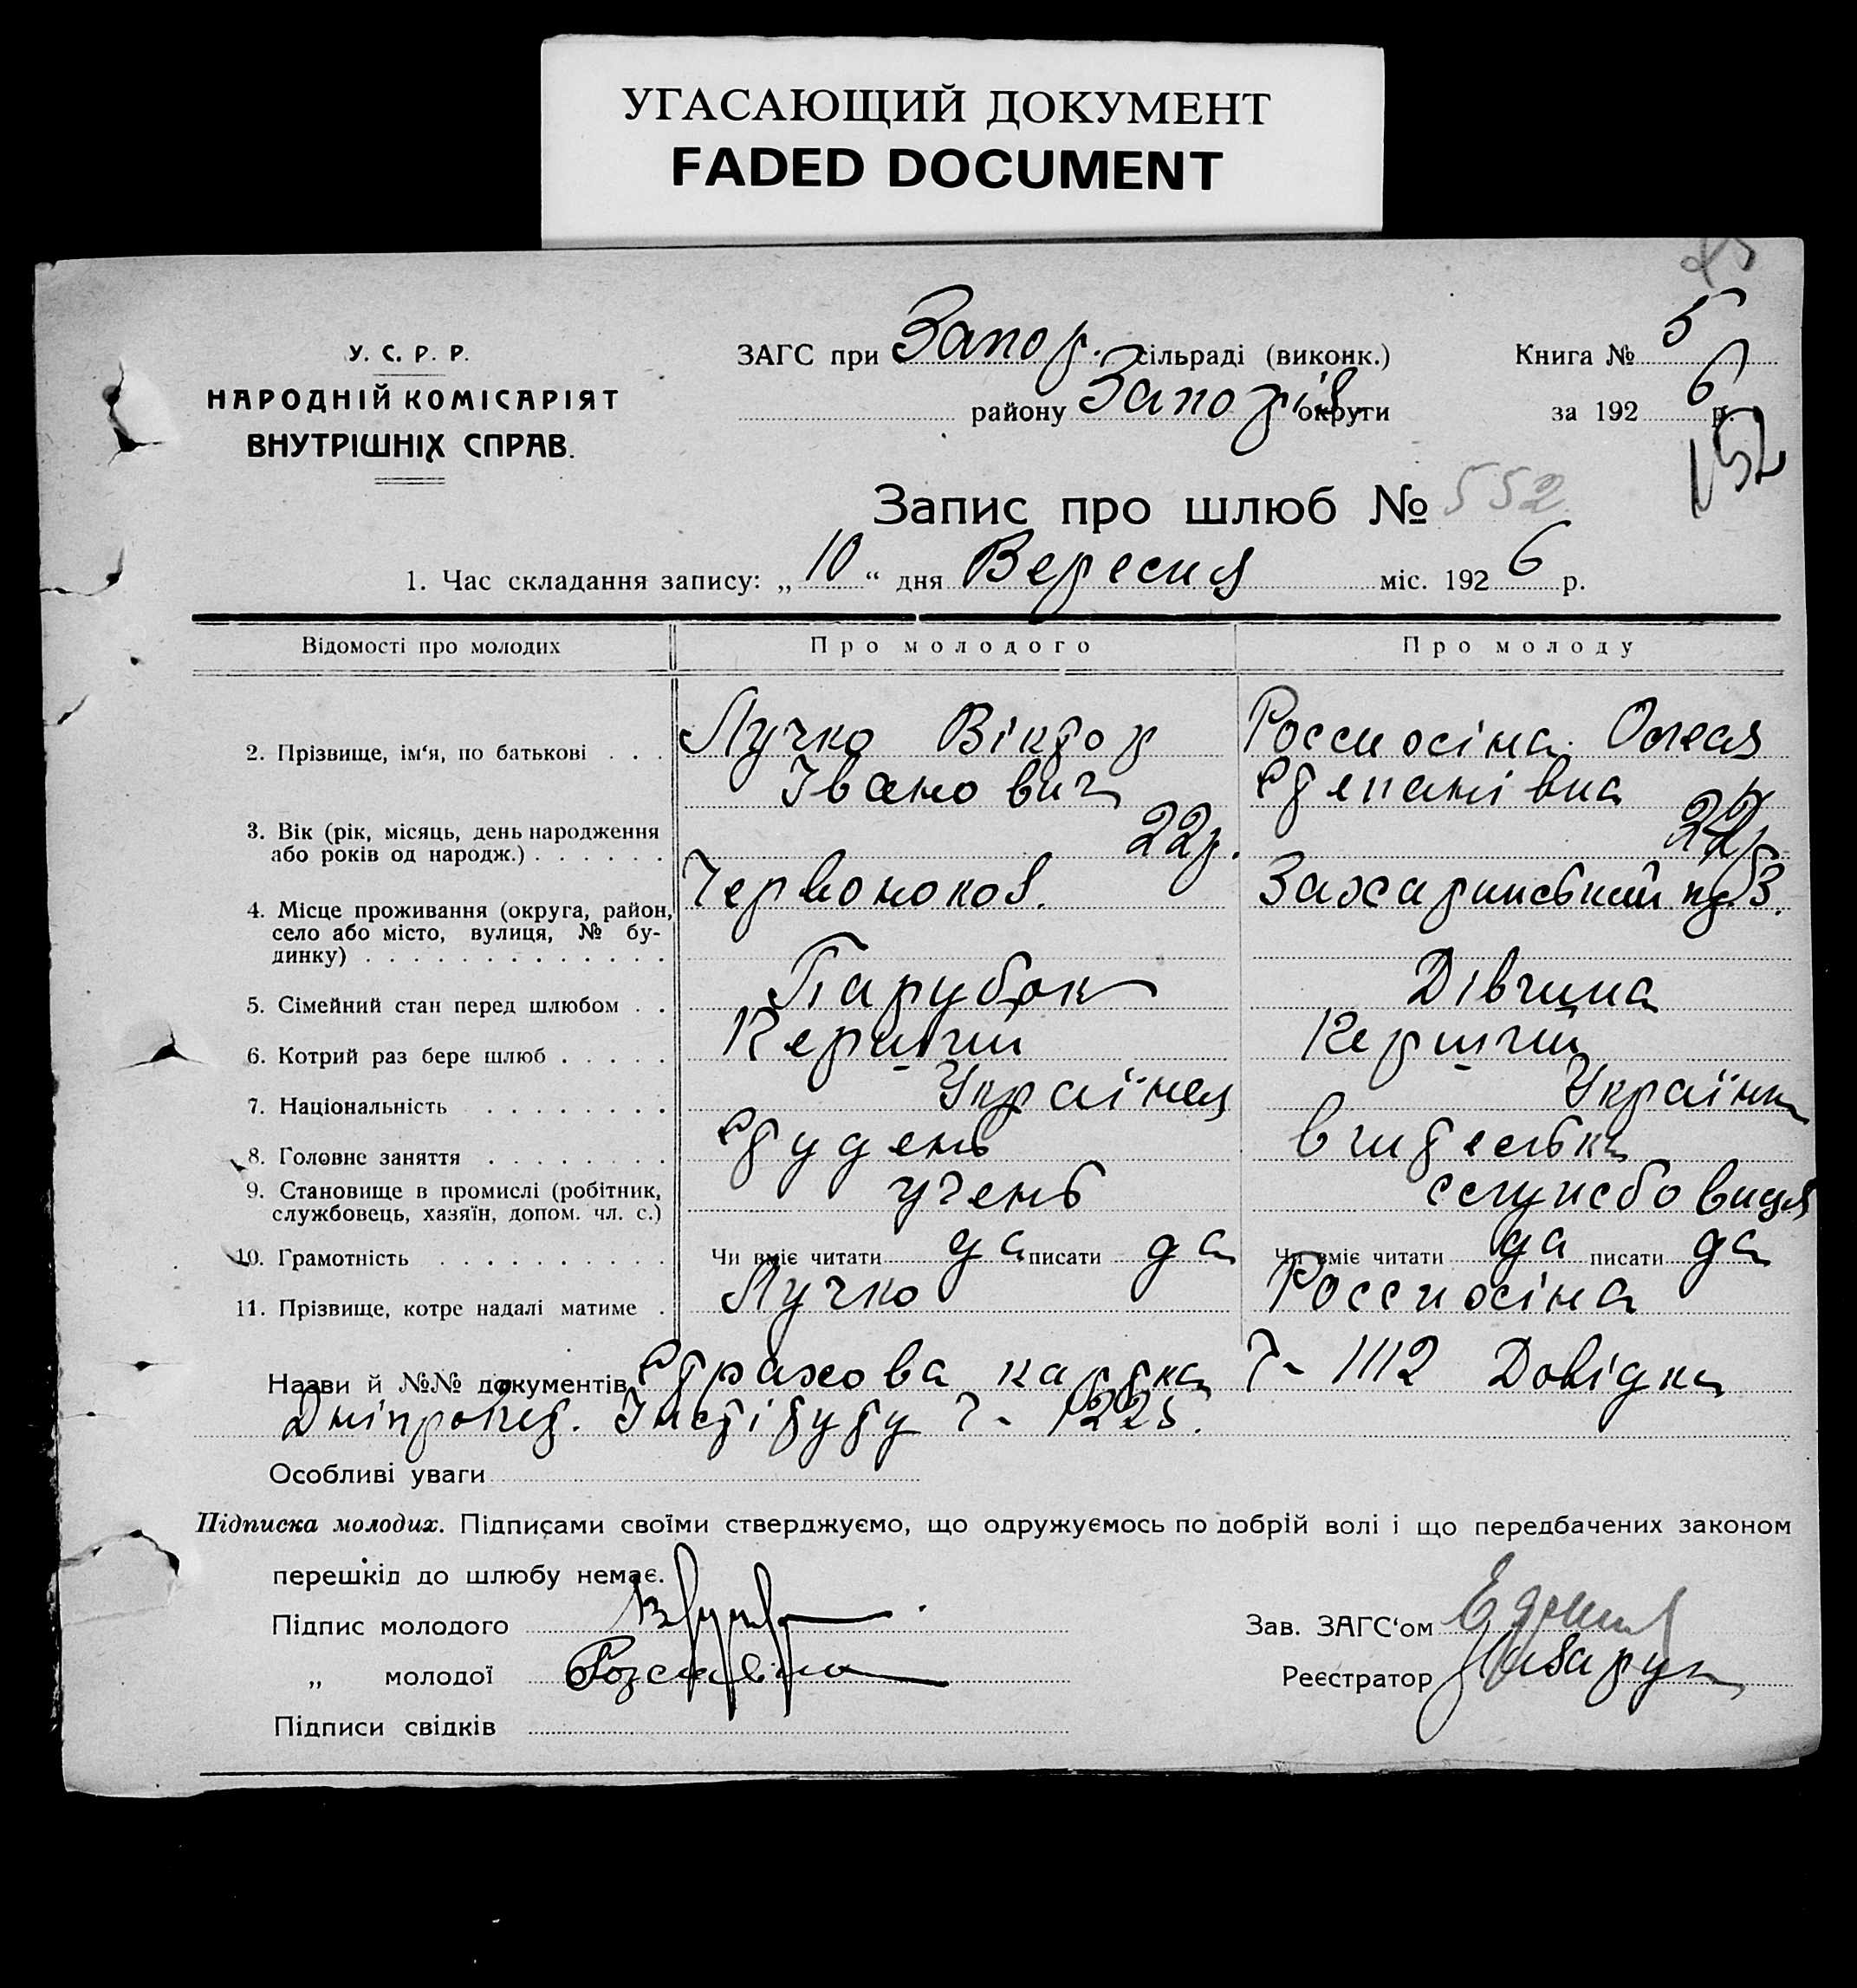 УГАСАЮЩИЙ ДОКУМЕНТ
FADED DOCUMENT
У. С. Р. Р.
НАРОДНІЙ КОМІСАРІЯТ
ВНУТРІШНІХ СПРАВ.
ЗАГС при Запор. сільраді (виконк.)
району Запоріз. округи
Книга № 5
за 192 6 р.
152
Запис про шлюб № 552
1. Час складання запису: „ 10 “ дня Вересня міс. 192 6 р.
Відомості про молодих Про молодого Про молоду
2. Прізвище, ім‘я, по батькові . . . Лучко Віктор Олеся
Іванович Степанівна
3. Вік (рік, місяць, день народження
або років од народж.) . . . . . . 22р. 22р
4. Місце проживання (округа, район,
село або місто, вулиця, № бу-
динку) . . . . . . . . . . . . .
Червонокоз.
5. Сімейний стан перед шлюбом . . Парубок Дівчина
6. Котрий раз бере шлюб . . . . . Перший Перший
7. Національність . . . . . . . . Українец Українка
8. Головне заняття . . . . . . . . Студент вчителька
9. Становище в промислі (робітник,
службовець, хазяїн, допом. чл. с.)
учень службовиця
10. Грамотність . . . . . . . . . . Чи вміє читати да писати да Чи вміє читати да писати да
11. Прізвище, котре надалі матиме . Лучко
Назви й №№ документів Страхова картка Ч- 1112 Довідка
Інстітуту ч- 1225.
Особливі уваги
Підписка молодих. Підписами своїми стверджуємо, що одружуємось по добрій волі і що передбачених законом
перешкід до шлюбу немає.
Підпис молодого
Зав. ЗАГС‘ом
„ молодої
Реєстратор
Підписи свідків